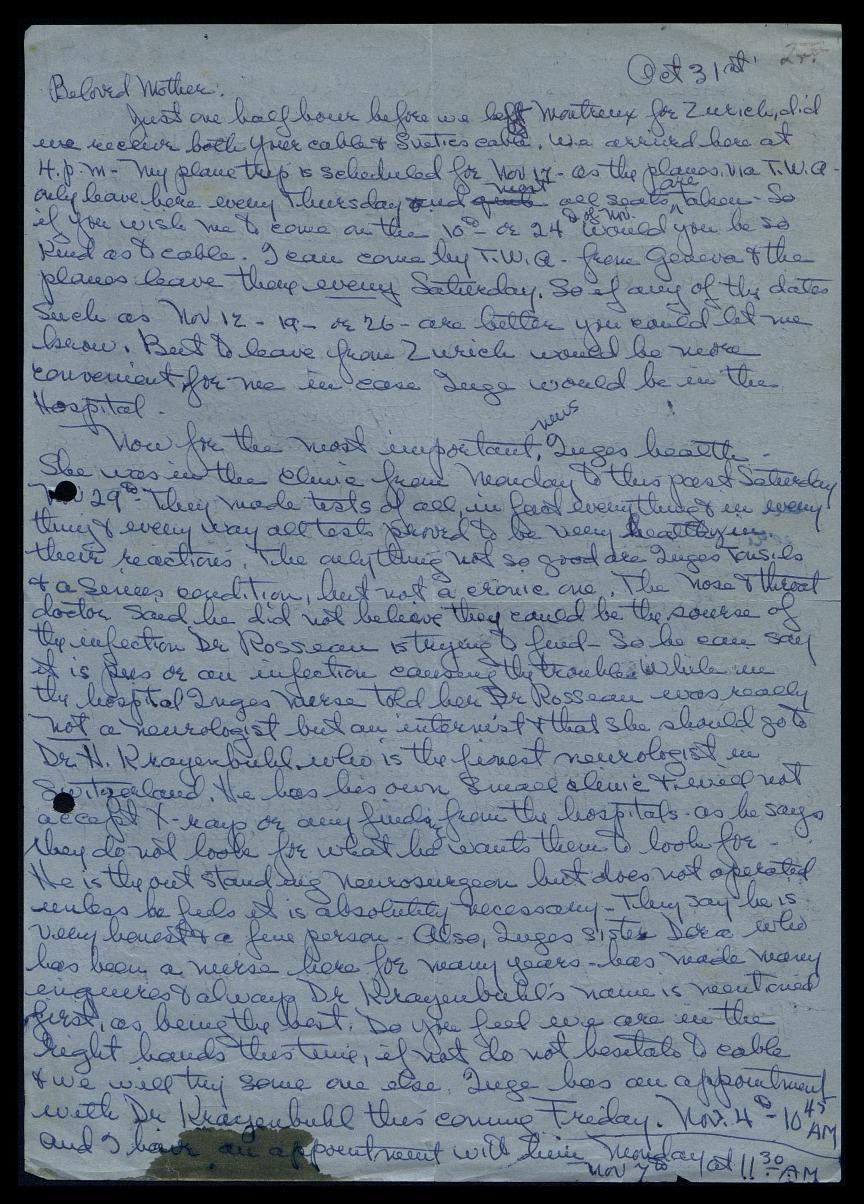 Oct 31st
Beloved Mother:
Just one half hour before we left Montreux for Zurich, did
we receive both your cable & Sveties cable. We arrived here at
4. p.m - My plane trip is scheduled for Nov 17 - as the planes, via T.W.A -
only leave here every Thursday and quite most all seats are taken - So
if you wish me to come on the 10th - or 24th of Nov. would you be so
kind as to cable. I can come by T.W.A - from Geneva & the
planes leave there every Saturday. So if any of the dates
such as Nov 12 - 19 - or 26 - are better you could let me
know. But to leave from Zurich would be more
convenient, for me in case Inge would be in the
Hospital.
Now for the most important, news Inges health -
She was in the clinic from Monday to this past Saturday
29th - They made tests of all, in fact everything & in every
thing & every way all tests proved to be very healthy in
their reactions. The only thing not so good are Inges Tonsils
& a Sinus condition, but not a cronic one. The nose & throat
doctor said he did not believe they could be the sourse of
the infection Dr Rosseau is trying to find - So he can say
it is pus or an infection causing the trouble. While in
the hospital Inges nurse told her Dr Rosseau was really
not a neurologist but an internist & that she should go to
Dr. H. Krayenbuhl. who is the finest neurologist in
Switzerland. He has his own small clinic & will not
accept X-rays or any findings from the hospitals - as he says
they do not look for what he wants them to look for -
He is the out standing neurosurgeon but does not operated
unless he feels it is absolutely necessary - They say he is
very honest & a fine person - Also, Inges sister Dora who
has been a nurse here for many years - has made many
enquires & always Dr Krayenbuhl's name is mentioned
first, as being the best. Do you feel we are in the
right hands this time, if not do not hesitate to cable
& we will try some one else. Inge has an appointment
with Dr Krayenbuhl this coming Friday. Nov. 4th - 10 45 AM
and I have an appointment with him Monday Nov 7th at 11 30 AM